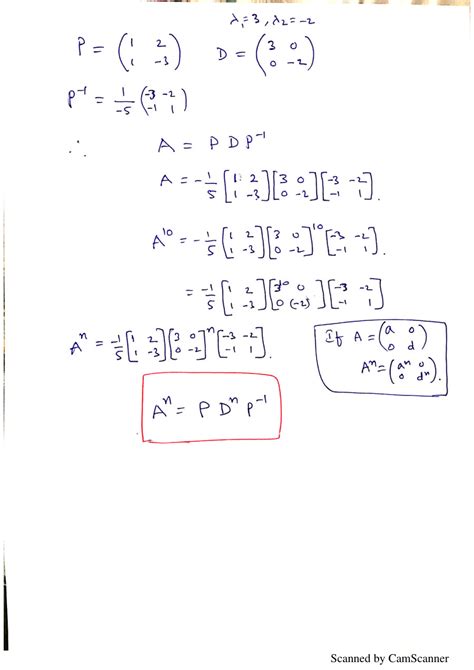 λ₁=3, λ₂=-2
P = (1 2 / 1 -3) D = (3 0 / 0 -2)
P⁻¹ = 1/-5 (-3 -2 / -1 1)
∴ A = P D P⁻¹
A = -1/5 [1 2 / 1 -3][3 0 / 0 -2][-3 -2 / -1 1].
A¹⁰ = -1/5 [1 2 / 1 -3][3 0 / 0 -2]¹⁰[-3 -2 / -1 1].
= -1/5 [1 2 / 1 -3][3¹⁰ 0 / 0 (-2)][-3 -2 / -1 1]
Aⁿ = -1/5 [1 2 / 1 -3][3 0 / 0 -2]ⁿ[-3 -2 / -1 1].
If A = (a 0 / 0 d)
Aⁿ = (aⁿ 0 / 0 dⁿ).
Aⁿ = P Dⁿ P⁻¹
Scanned by CamScanner